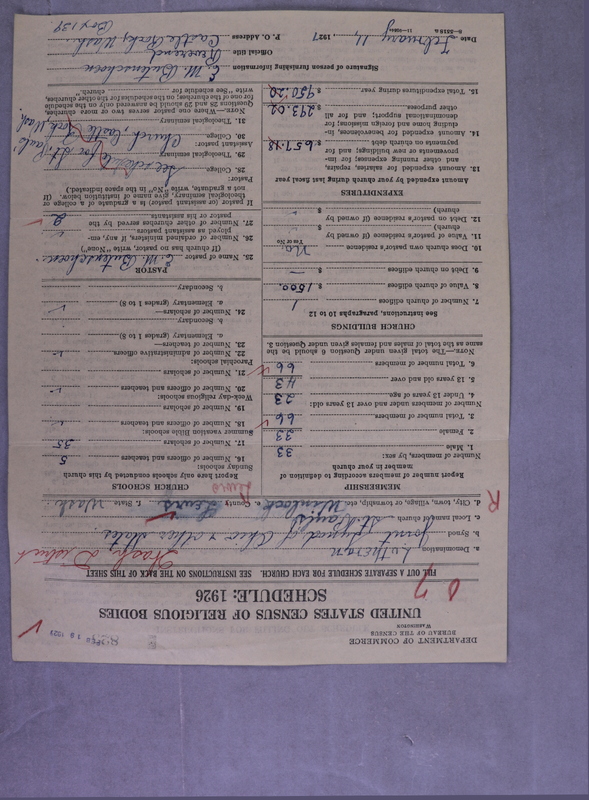 DEPARTMENT OF COMMERCE
BUREAU OF THE CENSUS
WASHINGTON
UNITED STATES CENSUS OF RELIGIOUS BODIES
SCHEDULE: 1926
FILL OUT A SEPARATE SCHEDULE FOR EACH CHURCH. SEE INSTRUCTIONS ON THE BACK OF THIS SHEET
a. Denomination Lutheran
b. Synod Joint Synod of Ohio & other States
c. Local name of church St. Paul's
d. City, town, village, or township, etc. Winlock e. County Lewis f. State Wash
MEMBERSHIP
Report number of members according to definition of member in your church
Number of members, by sex:
1. Male 33
2. Female 33
3. Total number of members 66
Number of members under and over 13 years old:
4. Under 13 years of age 23
5. 13 years old and over 43
6. Total number of members 66
NOTE.—The total given under Question 6 should be the same as the total of males and females given under Question 3.
CHURCH BUILDINGS
See instructions, paragraphs 10 to 12
7. Number of church edifices 1
8. Value of church edifices $ 1500.
9. Debt on church edifices $ —
10. Does own church pastor's residence No.
Yes or No
11. Value of pastor's residence (if owned by church) $
12. Debt on pastor's residence (if owned by church) $
EXPENDITURES
Amount expended by your church during last fiscal year
13. Amount expended for salaries, repairs, and other running expenses; for improvements or new buildings; and for payments on church debt $ 657.18
14. Amount expended for benevolences, including home and foreign missions; for denominational support; and for all other purposes $ 293.02
15. Total expenditures during year $ 950.20
CHURCH SCHOOLS
Report here only schools conducted by this church
Sunday schools:
16. Number of officers and teachers 5
17. Number of scholars 35
Summer vacation Bible schools:
18. Number of officers and teachers
19. Number of scholars
Week-day religious schools:
20. Number of officers and teachers
21. Number of scholars
Parochial schools:
22. Number of administrative officers
23. Number of teachers—
a. Elementary (grades 1 to 8)
b. Secondary
24. Number of scholars—
a. Elementary (grades 1 to 8)
b. Secondary
PASTOR
25. Name of pastor E. M. Butenschoen
(If church has no pastor, write "None")
26. Number of ordained ministers, if any, employed as assistant pastors
27. Number of other churches served by the pastor or his assistants 2
If pastor (or assistant pastor) is a graduate of a college or theological seminary, give name of institution below. (If not a graduate, write "No" in the space indicated.)
Pastor:
28. College
29. Theological seminary
Assistant pastor:
30. College
31. Theological seminary
See schedule for St. Paul's Church, Castle Rock, Wash.
NOTE.—When one pastor serves two or more churches, Questions 28 and 29 should be answered only on the schedule for one of the churches; on the schedules for the other churches, write "See schedule for church."
Signature of person furnishing information E. M. Butenschoen
Official title Reverend
P. O. Address Castle Rock, Wash.
Box 139.
Date February 11, 1927